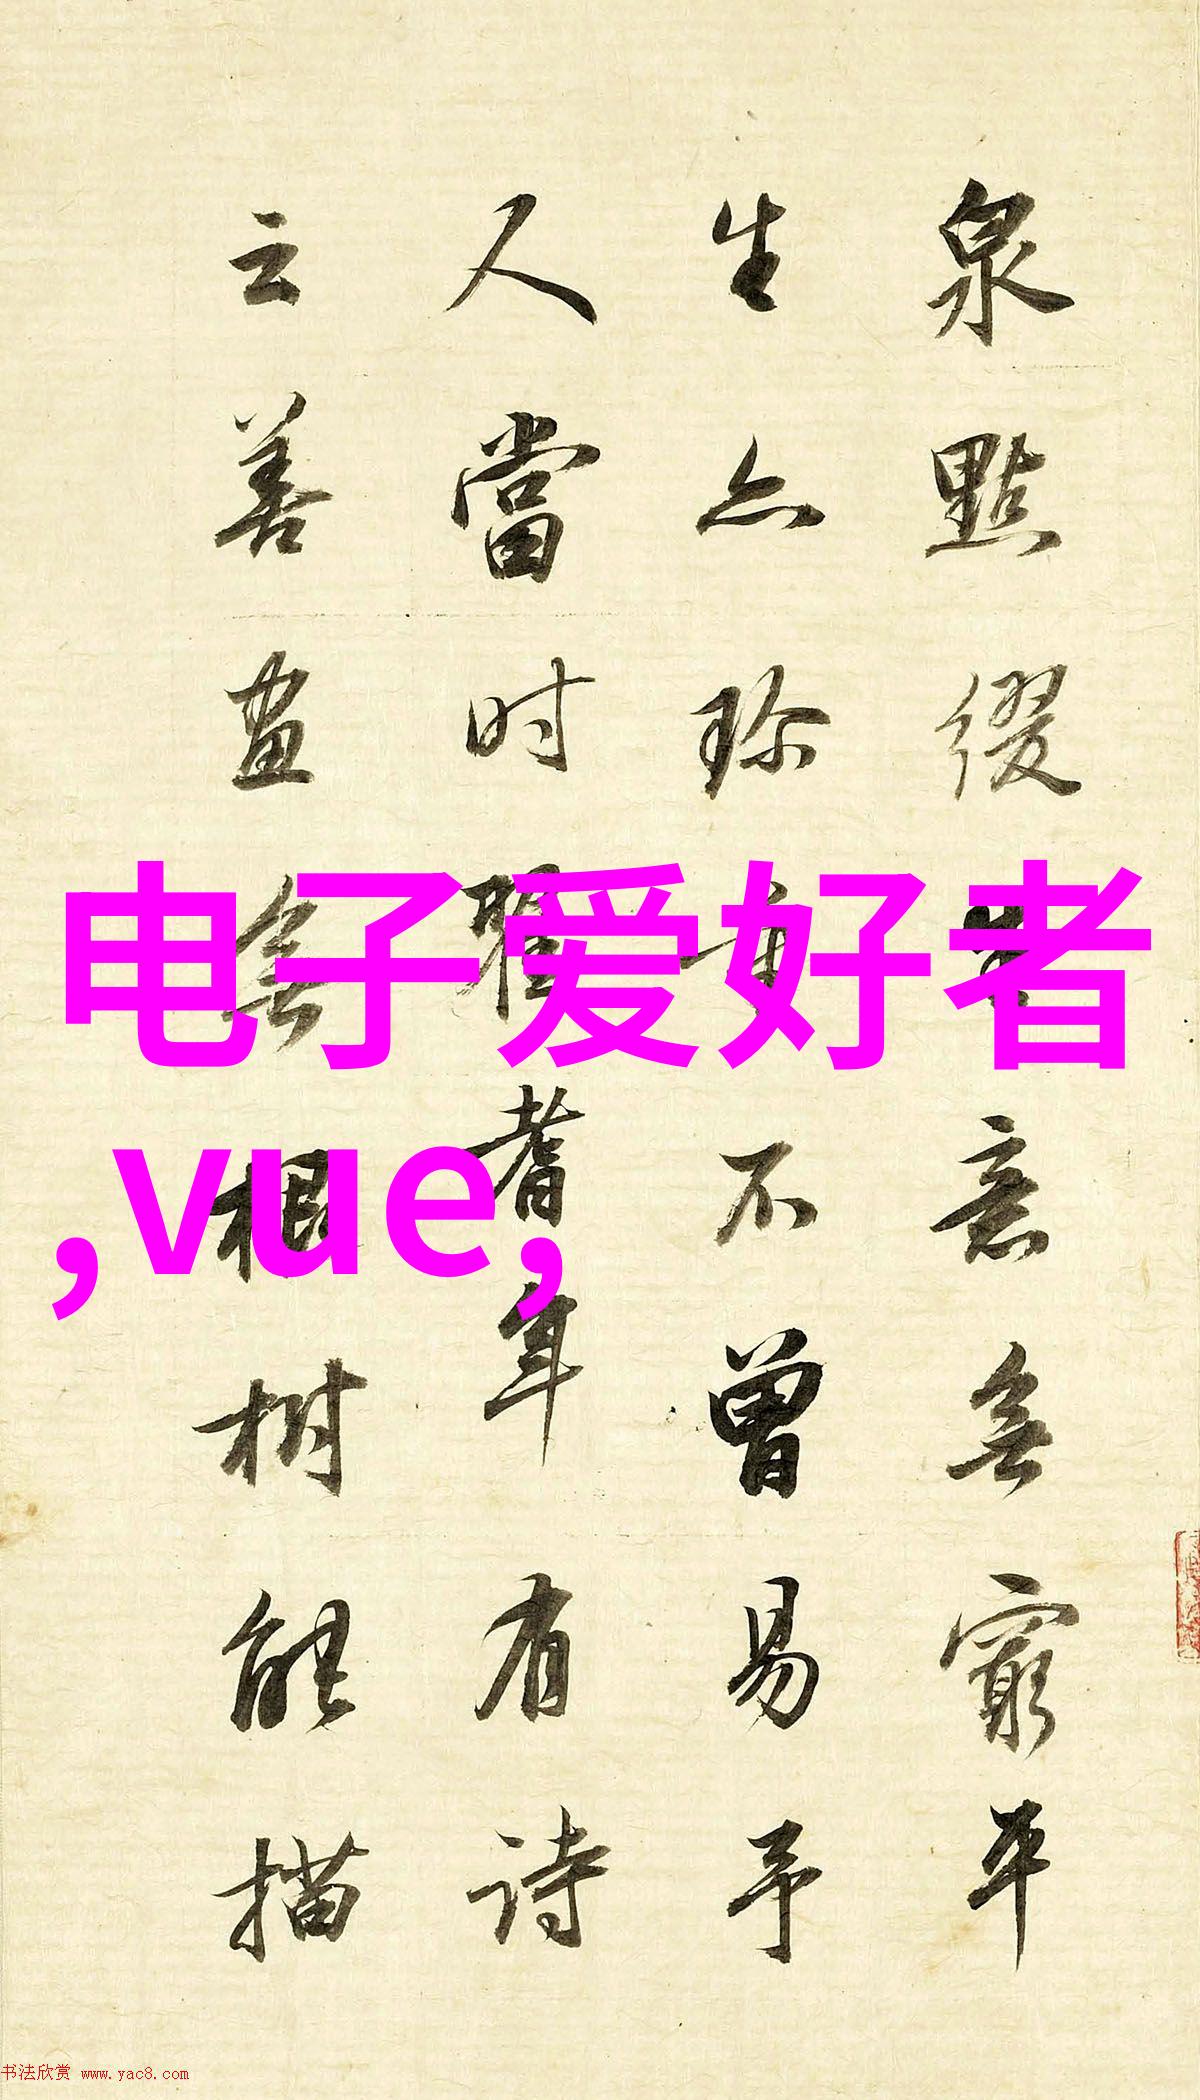 泉點綴意無窮平
生亦珎不曾易予
人當时耆年有詩
云善畫無根樹能描
电子爱好者
,vue,
书法欣赏 www.yac8.com